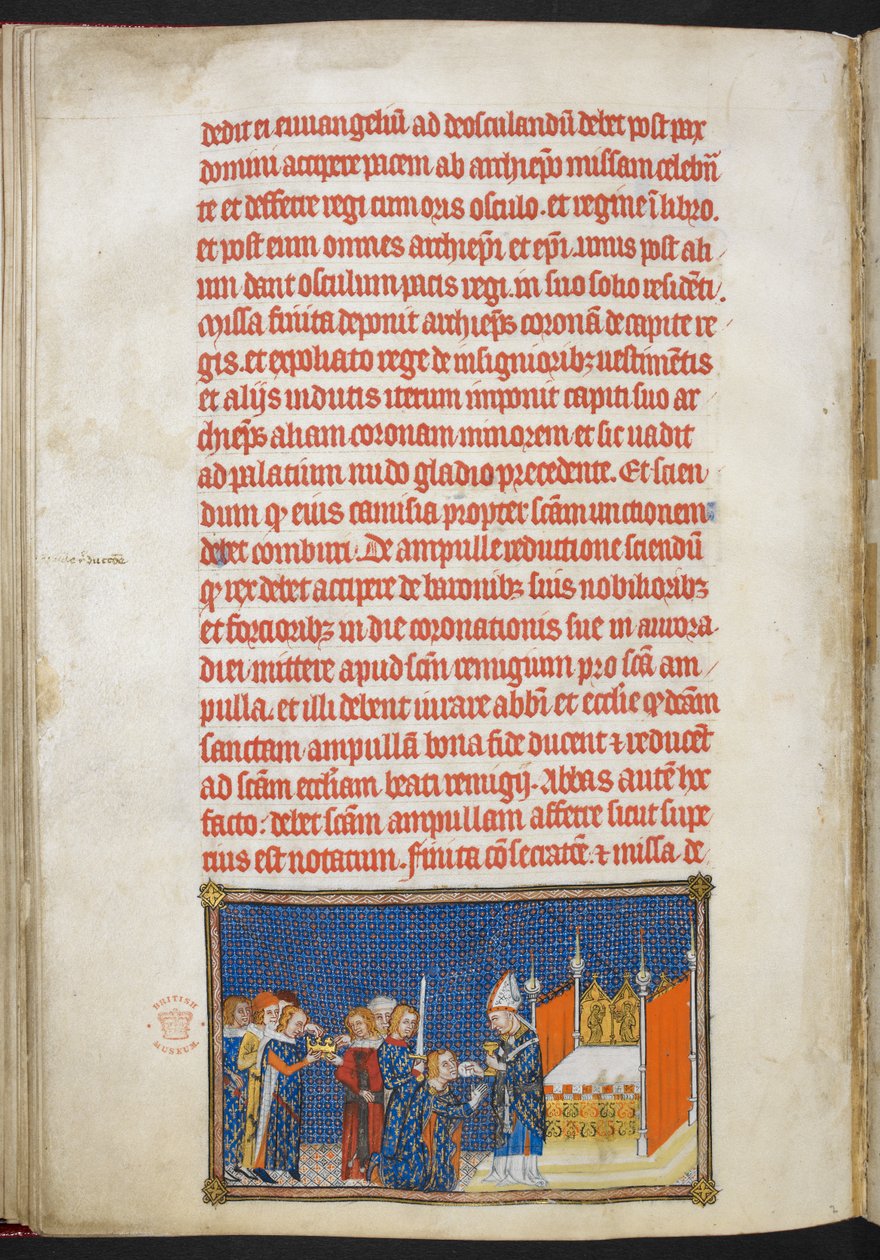 dedit ei euuangeliū ad deosculandū debet post pax
domini accipere pacem ab archiep̄o missam celebrā
te et defferre regi cum oris osculo. et regine ī libro.
et post eum omnes archiep̄i et ep̄i. unus post ali
um dant osculum pacis regi. in suo solio residēti.
Missa finita deponit archiep̄s coronā de capite re
gis. et expoliato rege de insignioribꝫ uestimētis
et alijs indutis iterum imponit capiti suo ar
chiep̄s aliam coronam minorem et sic uadit
ad palatium nudo gladio precedente. Et scien
dum ꝙ eius camisia propter sc̄am unctionem
debet comburi. De ampulle reductione sciendū
ꝙ rex debet accipere de baronibꝫ suis nobilioribꝫ
et forcioribꝫ in die coronationis sue in aurora
diei mittere apud sc̄m remigium pro sc̄a am
pulla. et illi debent iurare abb̄i et eccl̄ie ꝙ dc̄am
sanctam ampullā bona fide ducent ⁊ reducēt
ad sc̄am eccl̄iam beati remigij. Abbas autē hoc
facto: debet sc̄am ampullam afferre sicut supe
rius est notatum. Finita cōsecratōe. ⁊ missa de
BRITISH
MUSEUM
2